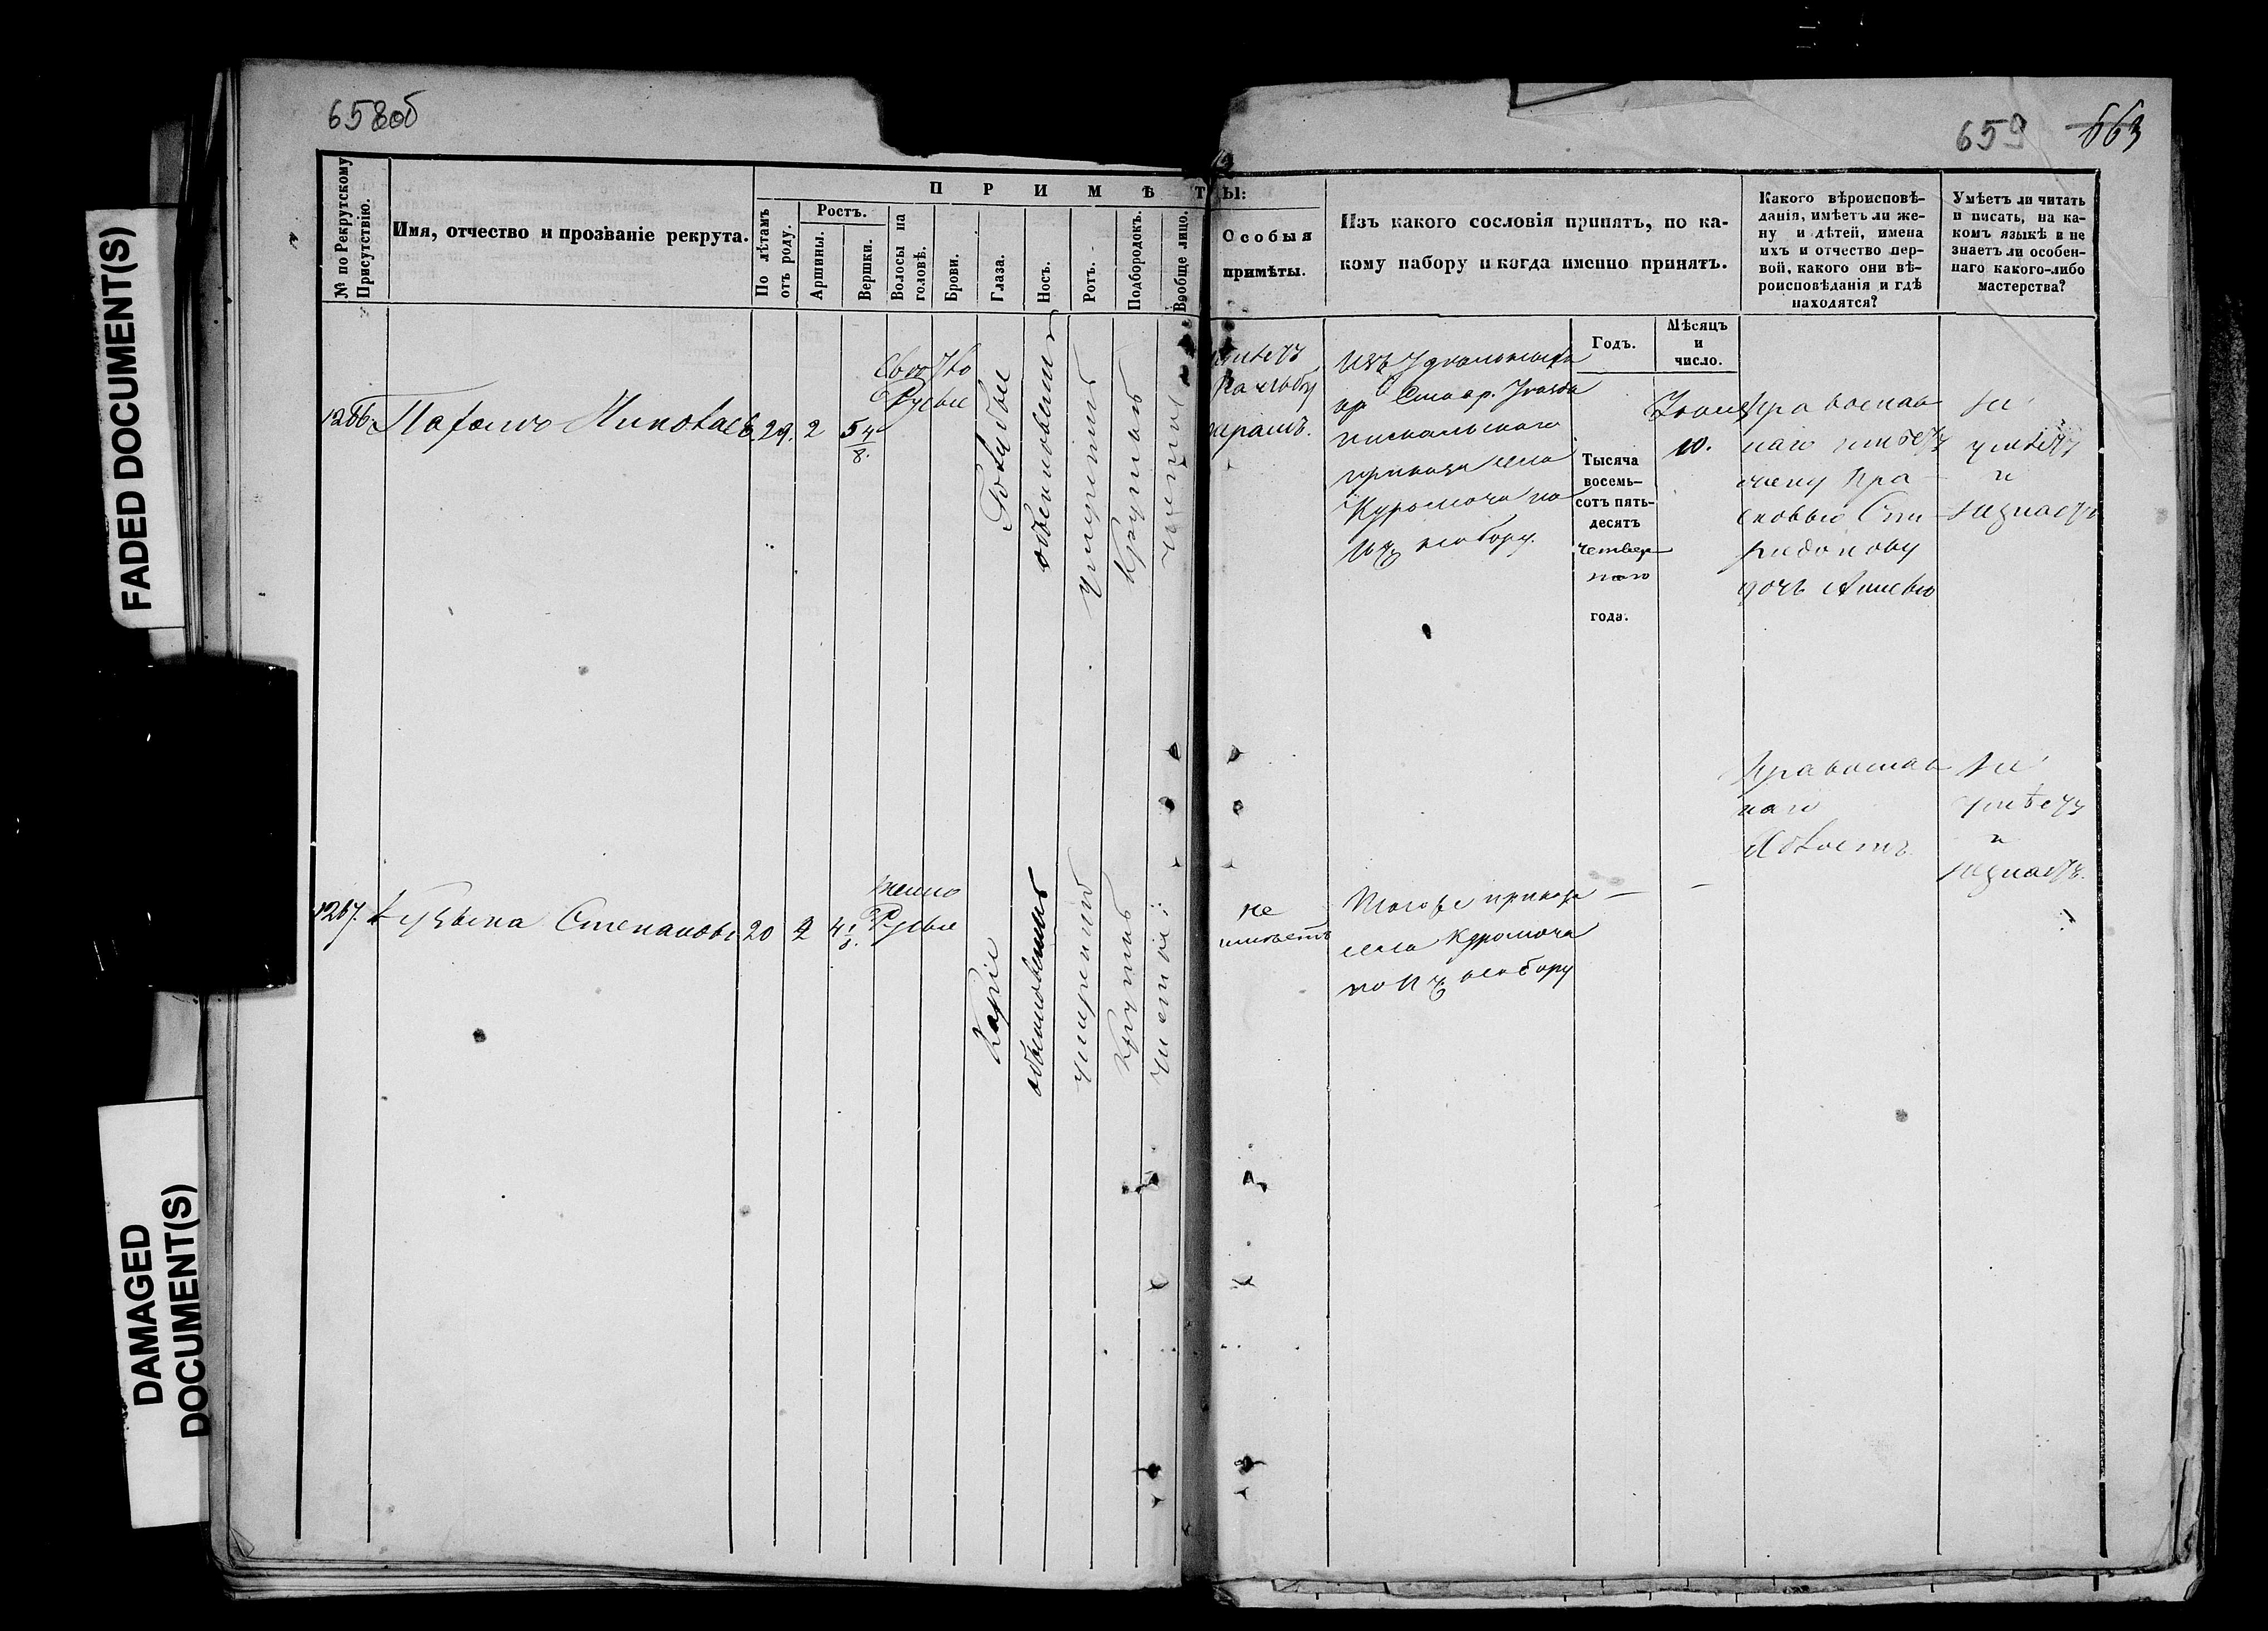 658об
659 663
FADED DOCUMENT(S)
DAMAGED
DOCUMENT(S)
№ по Рекрутскому
Присутствію.
Имя, отчество и прозваніе рекрута.
ПРИМѢТЫ:
По лѣтамъ
отъ роду.
Ростъ.
Аршины.
Вершки.
Волосы на
головѣ.
Брови.
Глаза.
Носъ.
Ротъ.
Подбородокъ.
Вообще лицо.
Особыя
примѣты.
Изъ какого сословія принятъ, по ка-
кому набору и когда именно принятъ.
Годъ.
Мѣсяцъ
и
число.
Какого вѣроисповѣ-
данія, имѣетъ ли же-
ну и дѣтей, имена
ихъ и отчество пер-
вой, какого они вѣ-
роисповѣданія и гдѣ
находятся?
Умѣетъ ли читать
и писать, на ка-
комъ языкѣ и не
знаетъ ли особен-
наго какого-либо
мастерства?
1266
Николаевъ
29.
2
5 4/8.
Свѣтло
Русые
Голубые
обыкновенный
умѣренный
круглый
чистое
имѣетъ
на лбу
шрамъ.
Изъ Удѣльныхъ
кр Ставр. Уѣзда
приказа села
Курумоча по
набору.
Тысяча
восемь-
сотъ пять-
десятъ
четвер
таго
года.
10.
Православ
наго имѣетъ
жену Пра
сковью Спи
ридонову
дочь
не
умѣетъ
и
незнаетъ
1267.
Кузьма Степановъ
20
2
4 1/8.
темно
Русые
Каріе
обыкновенный
умѣренный
круглый
чистое
не
имѣетъ
Тогоже приказа
села Курумоча
по набору
Православ
наго
Холостъ
не
умѣетъ
и
незнаетъ.